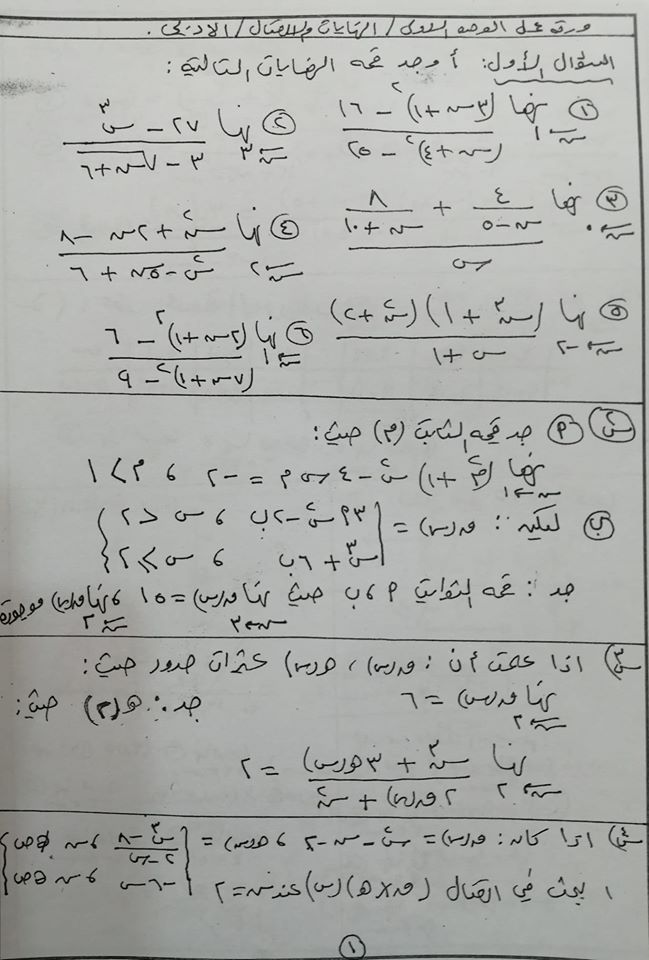 ورقة عمل الوحدة الأولى / النهايات والاتصال / الأدبي.
السؤال الأول: أوجد قيمة النهايات التالية:
① نها س←١ ((٣س+١)^٢ - ١٦) / ((س+٤)^٢ - ٢٥) ② نها س←٣ (٢٧ - س^٣) / (٣ - √(س+٦))
③ نها س←٠ (٤/(س-٥) + ٨/(س+١٠)) / س ④ نها س←٢ (س^٢ + ٢س - ٨) / (س^٢ - ٥س + ٦)
⑤ نها س←-٢ (س^٣ + ١)(س^٢ + ٢) / (س + ١) ⑥ نها س←١ ((٢س+١)^٢ - ٦) / ((٧س+١)^٢ - ٩)
س٢ أ) جد قيمة الثابت (م) حيث:
نها س←١ (م^٢ + ١) س^٢ - ٤س م = -٢ ، م > ١
ب) ليكن: ق(س) = { ٣أس^٢ - ٢ب ، س > ٢
س^٣ + ٦ب ، س ≤ ٢ }
جد: قيمة الثوابت أ، ب حيث نها س←٣ ق(س) = ١٥ ، نها س←٢ ق(س) موجودة
س٣) اذا علمت أن: ق(س) ، ه(س) كثيرات حدود حيث:
نها س←٢ ق(س) = ٦ جد: ه(٢) حيث:
نها س←٢ (س^٣ + ٣ه(س)) / (٢ق(س) + س^٢) = ٢
س٤) اذا كان: ق(س) = س^٢ - س - ٢ ، ه(س) = { (س^٣ - ٨)/(٢ - س) ، س
-٦س ، س
ابحث في اتصال (ق×ه)(س) عند س=٢
١